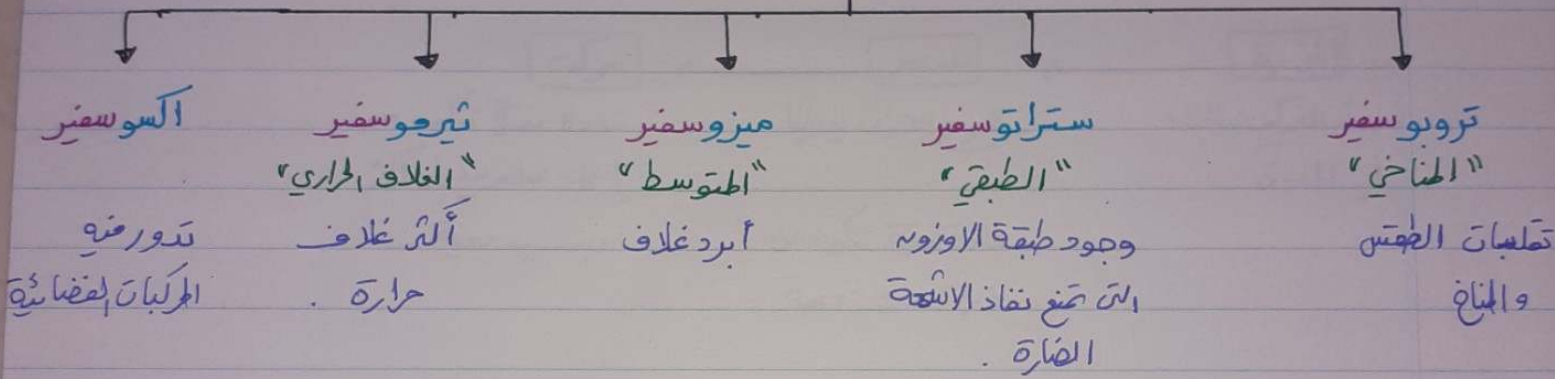 تروبوسفير
"المناخي"
تقلبات الطقس
والمناخ
ستراتوسفير
"الطبقي"
وجود طبقة الاوزون
التى تمنع نفاذ الاشعة
الضارة .
ميزوسفير
"المتوسط"
أبرد غلاف
ثيرموسفير
"الغلاف الحراري"
أكثر غلاف
حرارة .
اكسوسفير
تدور فيه
المركبات الفضائية